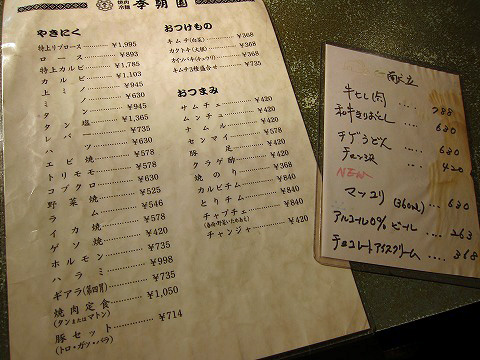 焼肉 冷麺 李朝園
やきにく
特上リブロース ¥1,995
ロース ¥893
特上カルビ ¥1,785
カルビ ¥1,103
上ミノ ¥945
ミノ ¥630
タン ¥945
タン塩 ¥1,365
レバー ¥735
ハツ ¥630
エビ焼 ¥578
トリモモ ¥578
コブクロ ¥630
野菜焼 ¥525
ラム ¥546
イカ焼 ¥578
ゲソ焼 ¥420
ホルモン ¥735
ハラミ ¥998
ギアラ(第四胃) ¥735
焼肉定食 ¥1,050
(タンまたはマトン)
豚セット ¥714
(トロ・ガツ・バラ)
おつけもの
キムチ(白菜) ¥368
カクトキ(大根) ¥368
オイソバキ(キュウリ) ¥368
キムチ3種盛合せ ¥735
おつまみ
サムチュ ¥420
ムンチュ ¥420
ナムル ¥420
センマイ ¥578
豚足 ¥420
クラゲ酢 ¥420
焼のり ¥368
カルビチム ¥840
とりチム ¥840
チャプチェ ¥840
チャンジャ ¥420
牛とし(肉) 788
630
チゲうどん 630
420
NEW
マッコリ(360ml) 630
アルコール0%ビール 263
チョコレートアイスクリーム 368